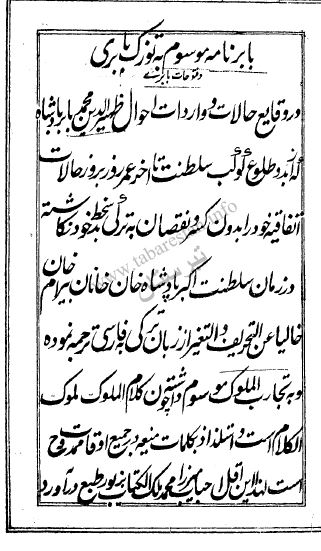 بابرنامه موسوم به توزک بابری
و فتوحات بابری
در وقایع حالات و واردات احوال ظهیرالدین محمد بابر پادشاه
که از بدو طلوع کوکب سلطنت تا اخر عمر روز بروز حالات
اتفاقیه خود را بدون کم و نقصان به ترکی بخط خود نگاشته
در زمان سلطنت اکبر پادشاه خان خانان بیرام خان
خالیا عن التحریف و التغیر از زبان ترکی به فارسی ترجمه نموده
و به تجارب الملوک موسوم داشته چون کلام الملوک ملوک
الکلام است و استلذاذ بکلمات منیعه در جمیع اوقات ممدوح
است لهذا این اقل احباب میرزا محمد ملک الکتاب بزیور طبع در آورد
www.tabarestan.info
تبرستان